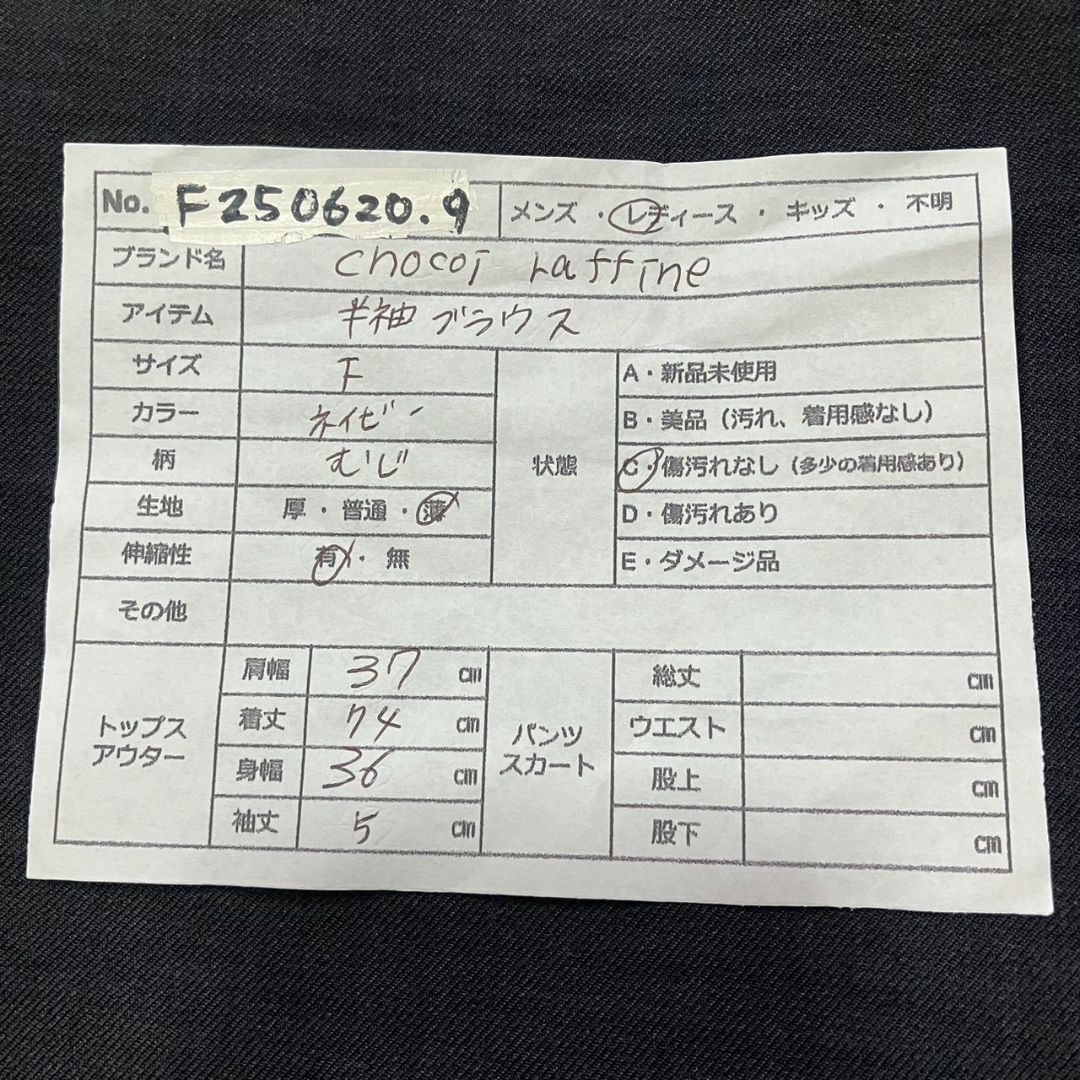 No. F250620.9 メンズ ・ レディース ・ キッズ ・ 不明
ブランド名 chocoi raffine
アイテム 半袖ブラウス
サイズ F
カラー ネイビー
柄 むじ
生地 厚・普通・薄
伸縮性 有・無
状態
A・新品未使用
B・美品（汚れ、着用感なし）
C・傷汚れなし（多少の着用感あり）
D・傷汚れあり
E・ダメージ品
その他
トップス
アウター
肩幅 37 cm
着丈 74 cm
身幅 36 cm
袖丈 5 cm
パンツ
スカート
総丈 cm
ウエスト cm
股上 cm
股下 cm